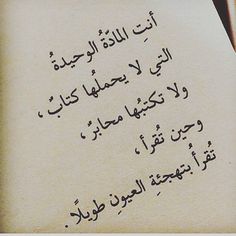 أنتِ المادّةُ الوحيدةُ
التي لا يحملُها كتابٌ ،
ولا تكتبُها محابرٌ ،
وحين تُقرأ ،
تُقرأُ بتهجئةِ العيونِ طويلًا .